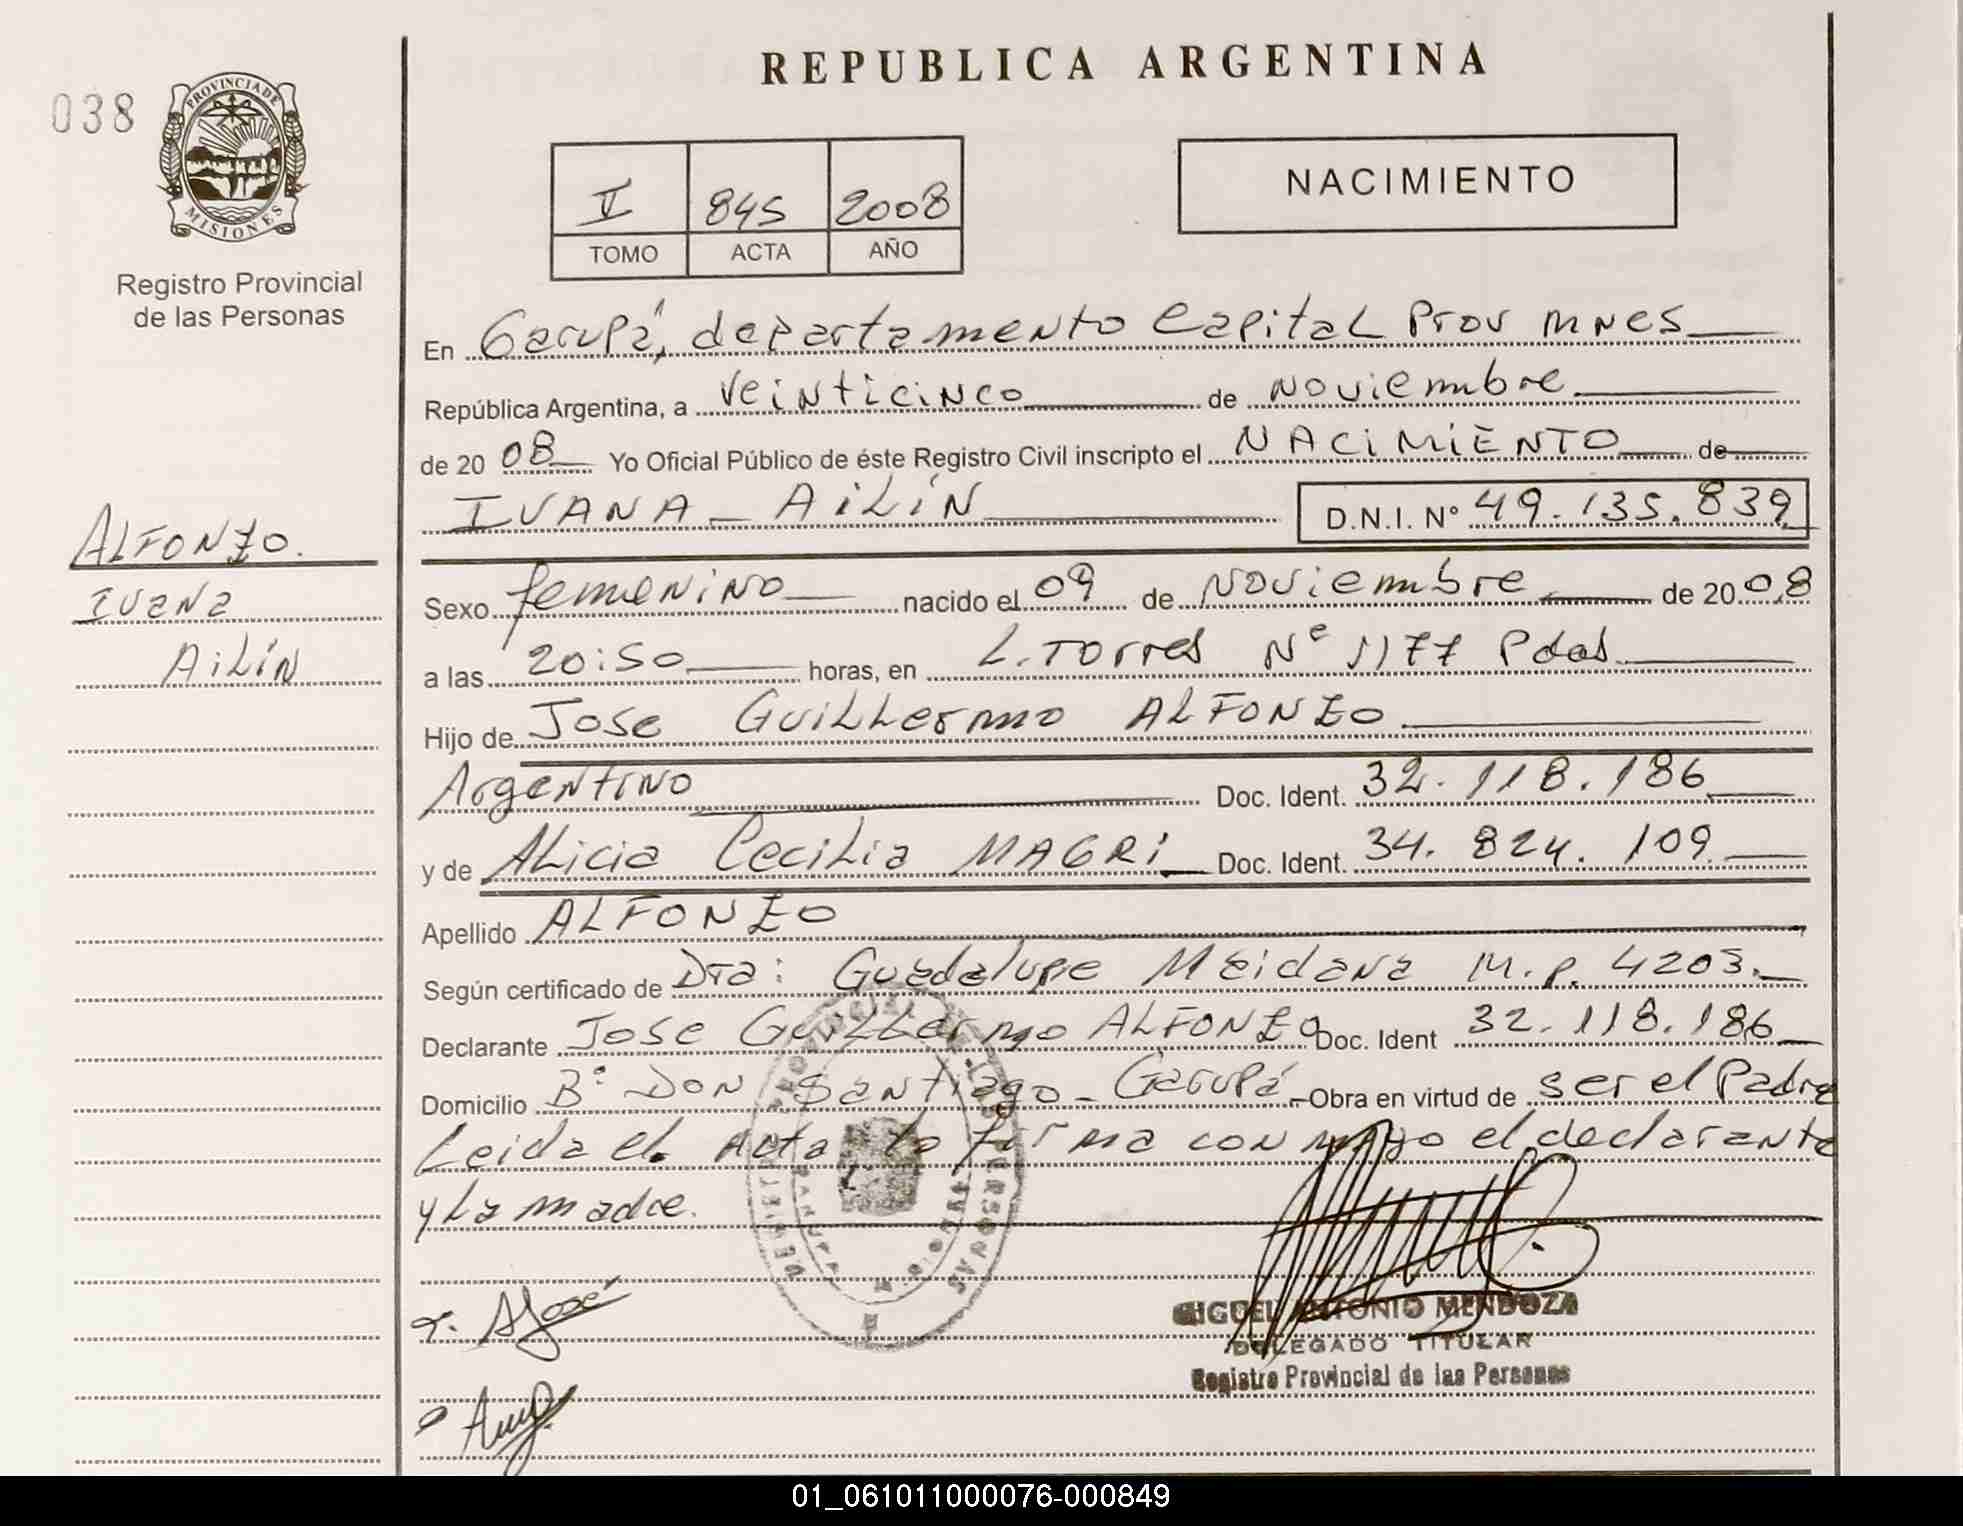 REPUBLICA ARGENTINA
038
PROVINCIA DE
MISIONES
Registro Provincial
de las Personas
V 845 2008
TOMO ACTA AÑO
NACIMIENTO
En Garupá, departamento Capital Prov Mnes
República Argentina, a veinticinco de noviembre
de 2008 Yo Oficial Público de éste Registro Civil inscripto el NACIMIENTO de
IVANA - AiLíN D.N.I. N° 49.135.839
ALFONZO.
Ivana
AiLíN
Sexo femenino nacido el 09 de noviembre de 2008
a las 20:50 horas, en L. Torres N° 1177 Pdas
Hijo de Jose Guillermo ALFONZO
Argentino Doc. Ident. 32.118.186
y de Alicia Cecilia MAGRI Doc. Ident. 34.824.109
Apellido ALFONZO
Según certificado de Dra: Guadalupe Meidana M.P. 4203.
Declarante Jose Guillermo ALFONZO Doc. Ident 32.118.186
Domicilio B° Don Santiago - Garupá - Obra en virtud de ser el Padre
Leida el Acta la firma conmigo el declarante
y La madre.
MIGUEL ANTONIO MENDOZA
DELEGADO TITULAR
Registro Provincial de las Personas
01_061011000076-000849